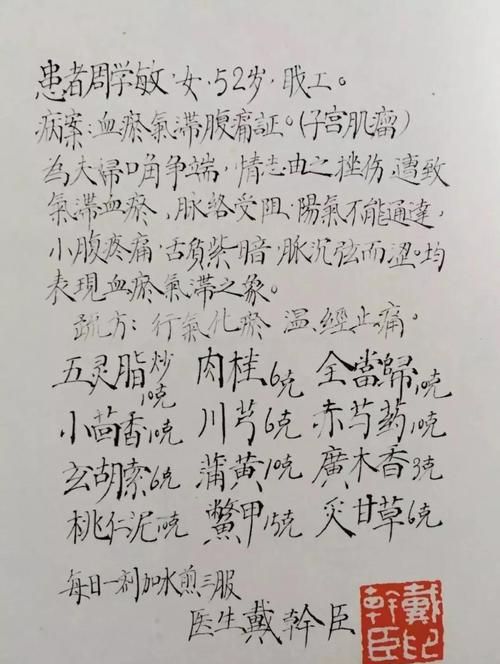 患者周学敏·女·52岁,职工。
病案:血瘀氣滯腹痛証。(子宫肌瘤)
為夫婦口角争端,情志由之挫伤,遭致
氣滞血瘀,脉络受阻·陽氣不能通達,
小腹疼痛·舌質紫暗·脉沉弦而涩。均
表現血瘀氣滞之象。
疏方:行氣化瘀 温經止痛。
五灵脂炒10克 肉桂6克 全當歸10克
小茴香10克 川芎6克 赤芍药10克
玄胡索6克 蒲黄10克 廣木香3克
桃仁泥10克 鱉甲15克 炙甘草6克
每日一剂加水煎三服
医生戴幹臣
戴幹臣印